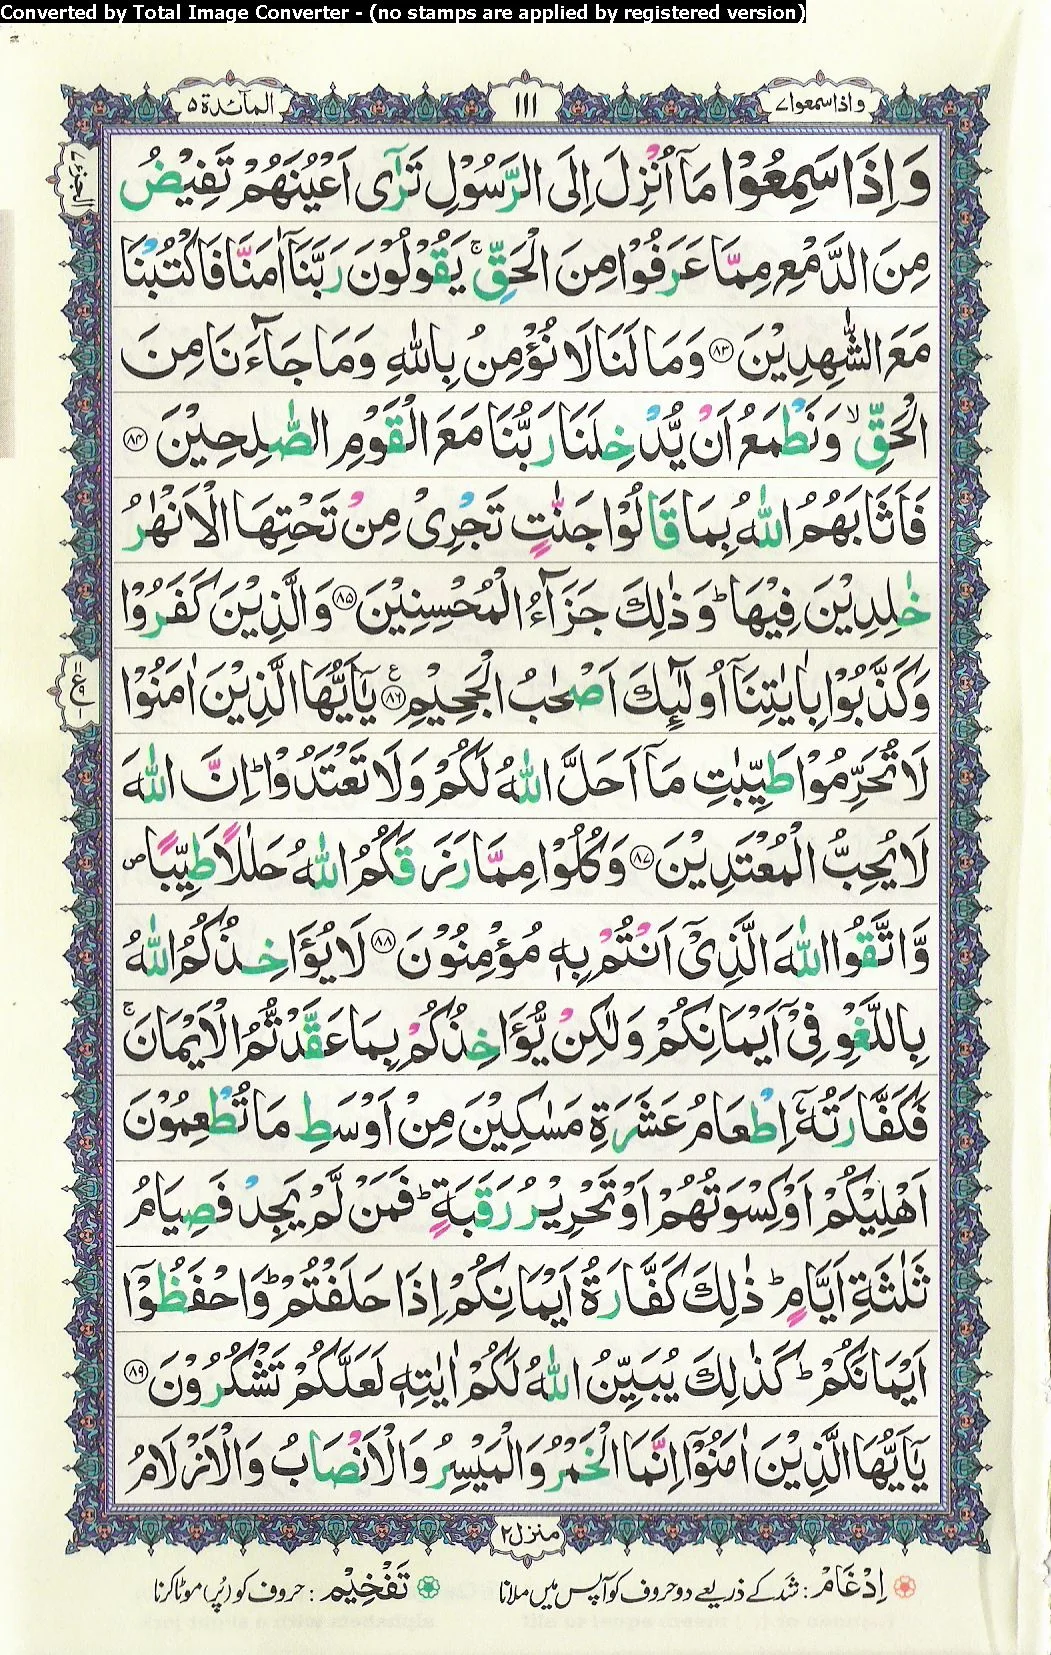 Converted by Total Image Converter - (no stamps are applied by registered version)
المآئدة ٥
١١١
و اذا سمعوا ٧
وَ اِذَا سَمِعُوْا مَاۤ اُنْزِلَ اِلَى الرَّسُوْلِ تَرٰۤى اَعْیُنَهُمْ تَفِیْضُ
الجزء ٧
مِنَ الدَّمْعِ مِمَّا عَرَفُوْا مِنَ الْحَقِّ ۚ یَقُوْلُوْنَ رَبَّنَاۤ اٰمَنَّا فَاكْتُبْنَا
مَعَ الشّٰهِدِیْنَ ﴿٨٣﴾ وَ مَا لَنَا لَا نُؤْمِنُ بِاللّٰهِ وَ مَا جَآءَنَا مِنَ
الْحَقِّ ۙ وَ نَطْمَعُ اَنْ یُّدْخِلَنَا رَبُّنَا مَعَ الْقَوْمِ الصّٰلِحِیْنَ ﴿٨٤﴾
فَاَثَابَهُمُ اللّٰهُ بِمَا قَالُوْا جَنّٰتٍ تَجْرِیْ مِنْ تَحْتِهَا الْاَنْهٰرُ
خٰلِدِیْنَ فِیْهَا ؕ وَ ذٰلِكَ جَزَآءُ الْمُحْسِنِیْنَ ﴿٨٥﴾ وَ الَّذِیْنَ كَفَرُوْا
وَ كَذَّبُوْا بِاٰیٰتِنَاۤ اُولٰٓىِٕكَ اَصْحٰبُ الْجَحِیْمِ ﴿٨٦﴾ ع یٰۤاَیُّهَا الَّذِیْنَ اٰمَنُوْا
لَا تُحَرِّمُوْا طَیِّبٰتِ مَاۤ اَحَلَّ اللّٰهُ لَكُمْ وَ لَا تَعْتَدُوْا ؕ اِنَّ اللّٰهَ
لَا یُحِبُّ الْمُعْتَدِیْنَ ﴿٨٧﴾ وَ كُلُوْا مِمَّا رَزَقَكُمُ اللّٰهُ حَلٰلًا طَیِّبًا ۪
وَّ اتَّقُوا اللّٰهَ الَّذِیْۤ اَنْتُمْ بِهٖ مُؤْمِنُوْنَ ﴿٨٨﴾ لَا یُؤَاخِذُكُمُ اللّٰهُ
بِاللَّغْوِ فِیْۤ اَیْمَانِكُمْ وَ لٰكِنْ یُّؤَاخِذُكُمْ بِمَا عَقَّدْتُّمُ الْاَیْمَانَ ۚ
فَكَفَّارَتُهٗۤ اِطْعَامُ عَشَرَةِ مَسٰكِیْنَ مِنْ اَوْسَطِ مَا تُطْعِمُوْنَ
اَهْلِیْكُمْ اَوْ كِسْوَتُهُمْ اَوْ تَحْرِیْرُ رَقَبَةٍ ؕ فَمَنْ لَّمْ یَجِدْ فَصِیَامُ
ثَلٰثَةِ اَیَّامٍ ؕ ذٰلِكَ كَفَّارَةُ اَیْمَانِكُمْ اِذَا حَلَفْتُمْ ؕ وَ احْفَظُوْۤا
اَیْمَانَكُمْ ؕ كَذٰلِكَ یُبَیِّنُ اللّٰهُ لَكُمْ اٰیٰتِهٖ لَعَلَّكُمْ تَشْكُرُوْنَ ﴿٨٩﴾
یٰۤاَیُّهَا الَّذِیْنَ اٰمَنُوْۤا اِنَّمَا الْخَمْرُ وَ الْمَیْسِرُ وَ الْاَنْصَابُ وَ الْاَزْلَامُ
منزل ٢
اِدْغَامْ : شد کے ذریعے دو حروف کو آپس میں ملانا
تَفْخِیْم : حروف کو (پُر) موٹا کرنا